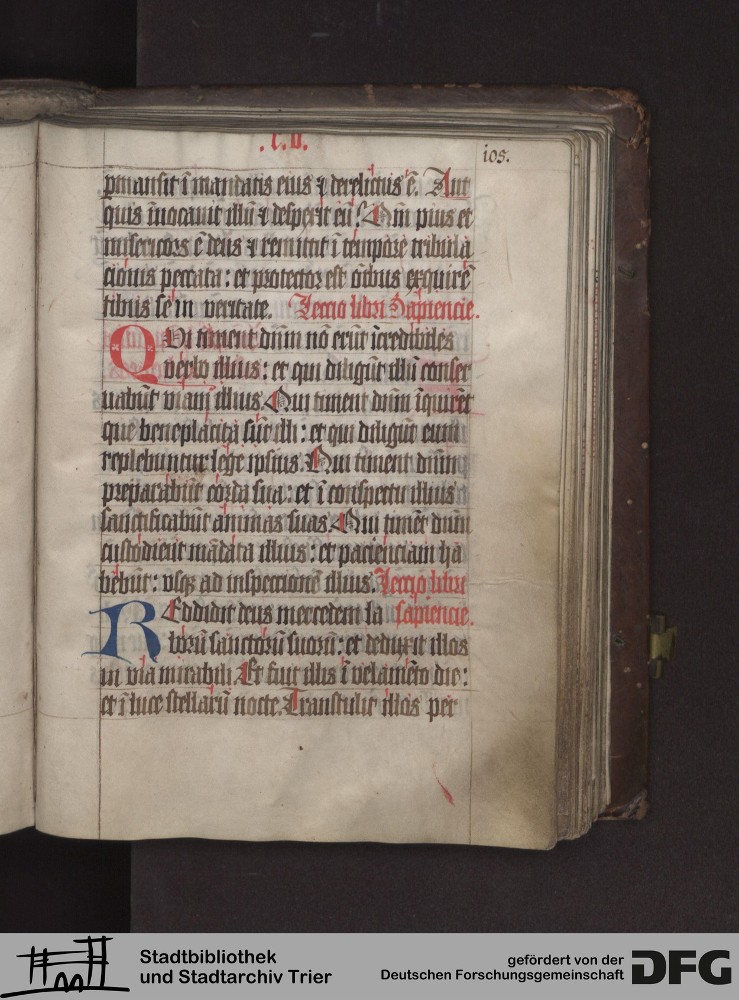 .c.v.
105.
ꝑmansit ī mandatis eius ⁊ derelictus ē. Aut
quis īuocauit illū ⁊ despexit eū? Qm̄ pius et
misericors ē deus ⁊ remittit ī tempore tribula
cionis peccata: et protector est oībus exquirē
tibus se in veritate. Leccio libri Sapiencie.
QVi timent dnm nō erūt īcredibiles
verbo illius: et qui diligūt illū conser
uabūt viam illius. Qui timent dnm īquirēt
que beneplacita sūt illi: et qui diligūt eum
replebuntur lege ipsius. Qui timent dnm
preparabūt corda sua: et ī conspectu illius
sanctificabūt animas suas. Qui timēt dnm
custodient mādata illius: et pacienciam ha
bebūt: vsqꝫ ad inspectionē illius. Leccio libri
REddidit deus mercedem la sapiencie.
borū sanctorū suorū: et deduxit illos
in via mirabili. Et fuit illis ī velamēto die:
et ī luce stellarū nocte. Transtulit illos per
Stadtbibliothek
und Stadtarchiv Trier
gefördert von der
Deutschen Forschungsgemeinschaft
DFG